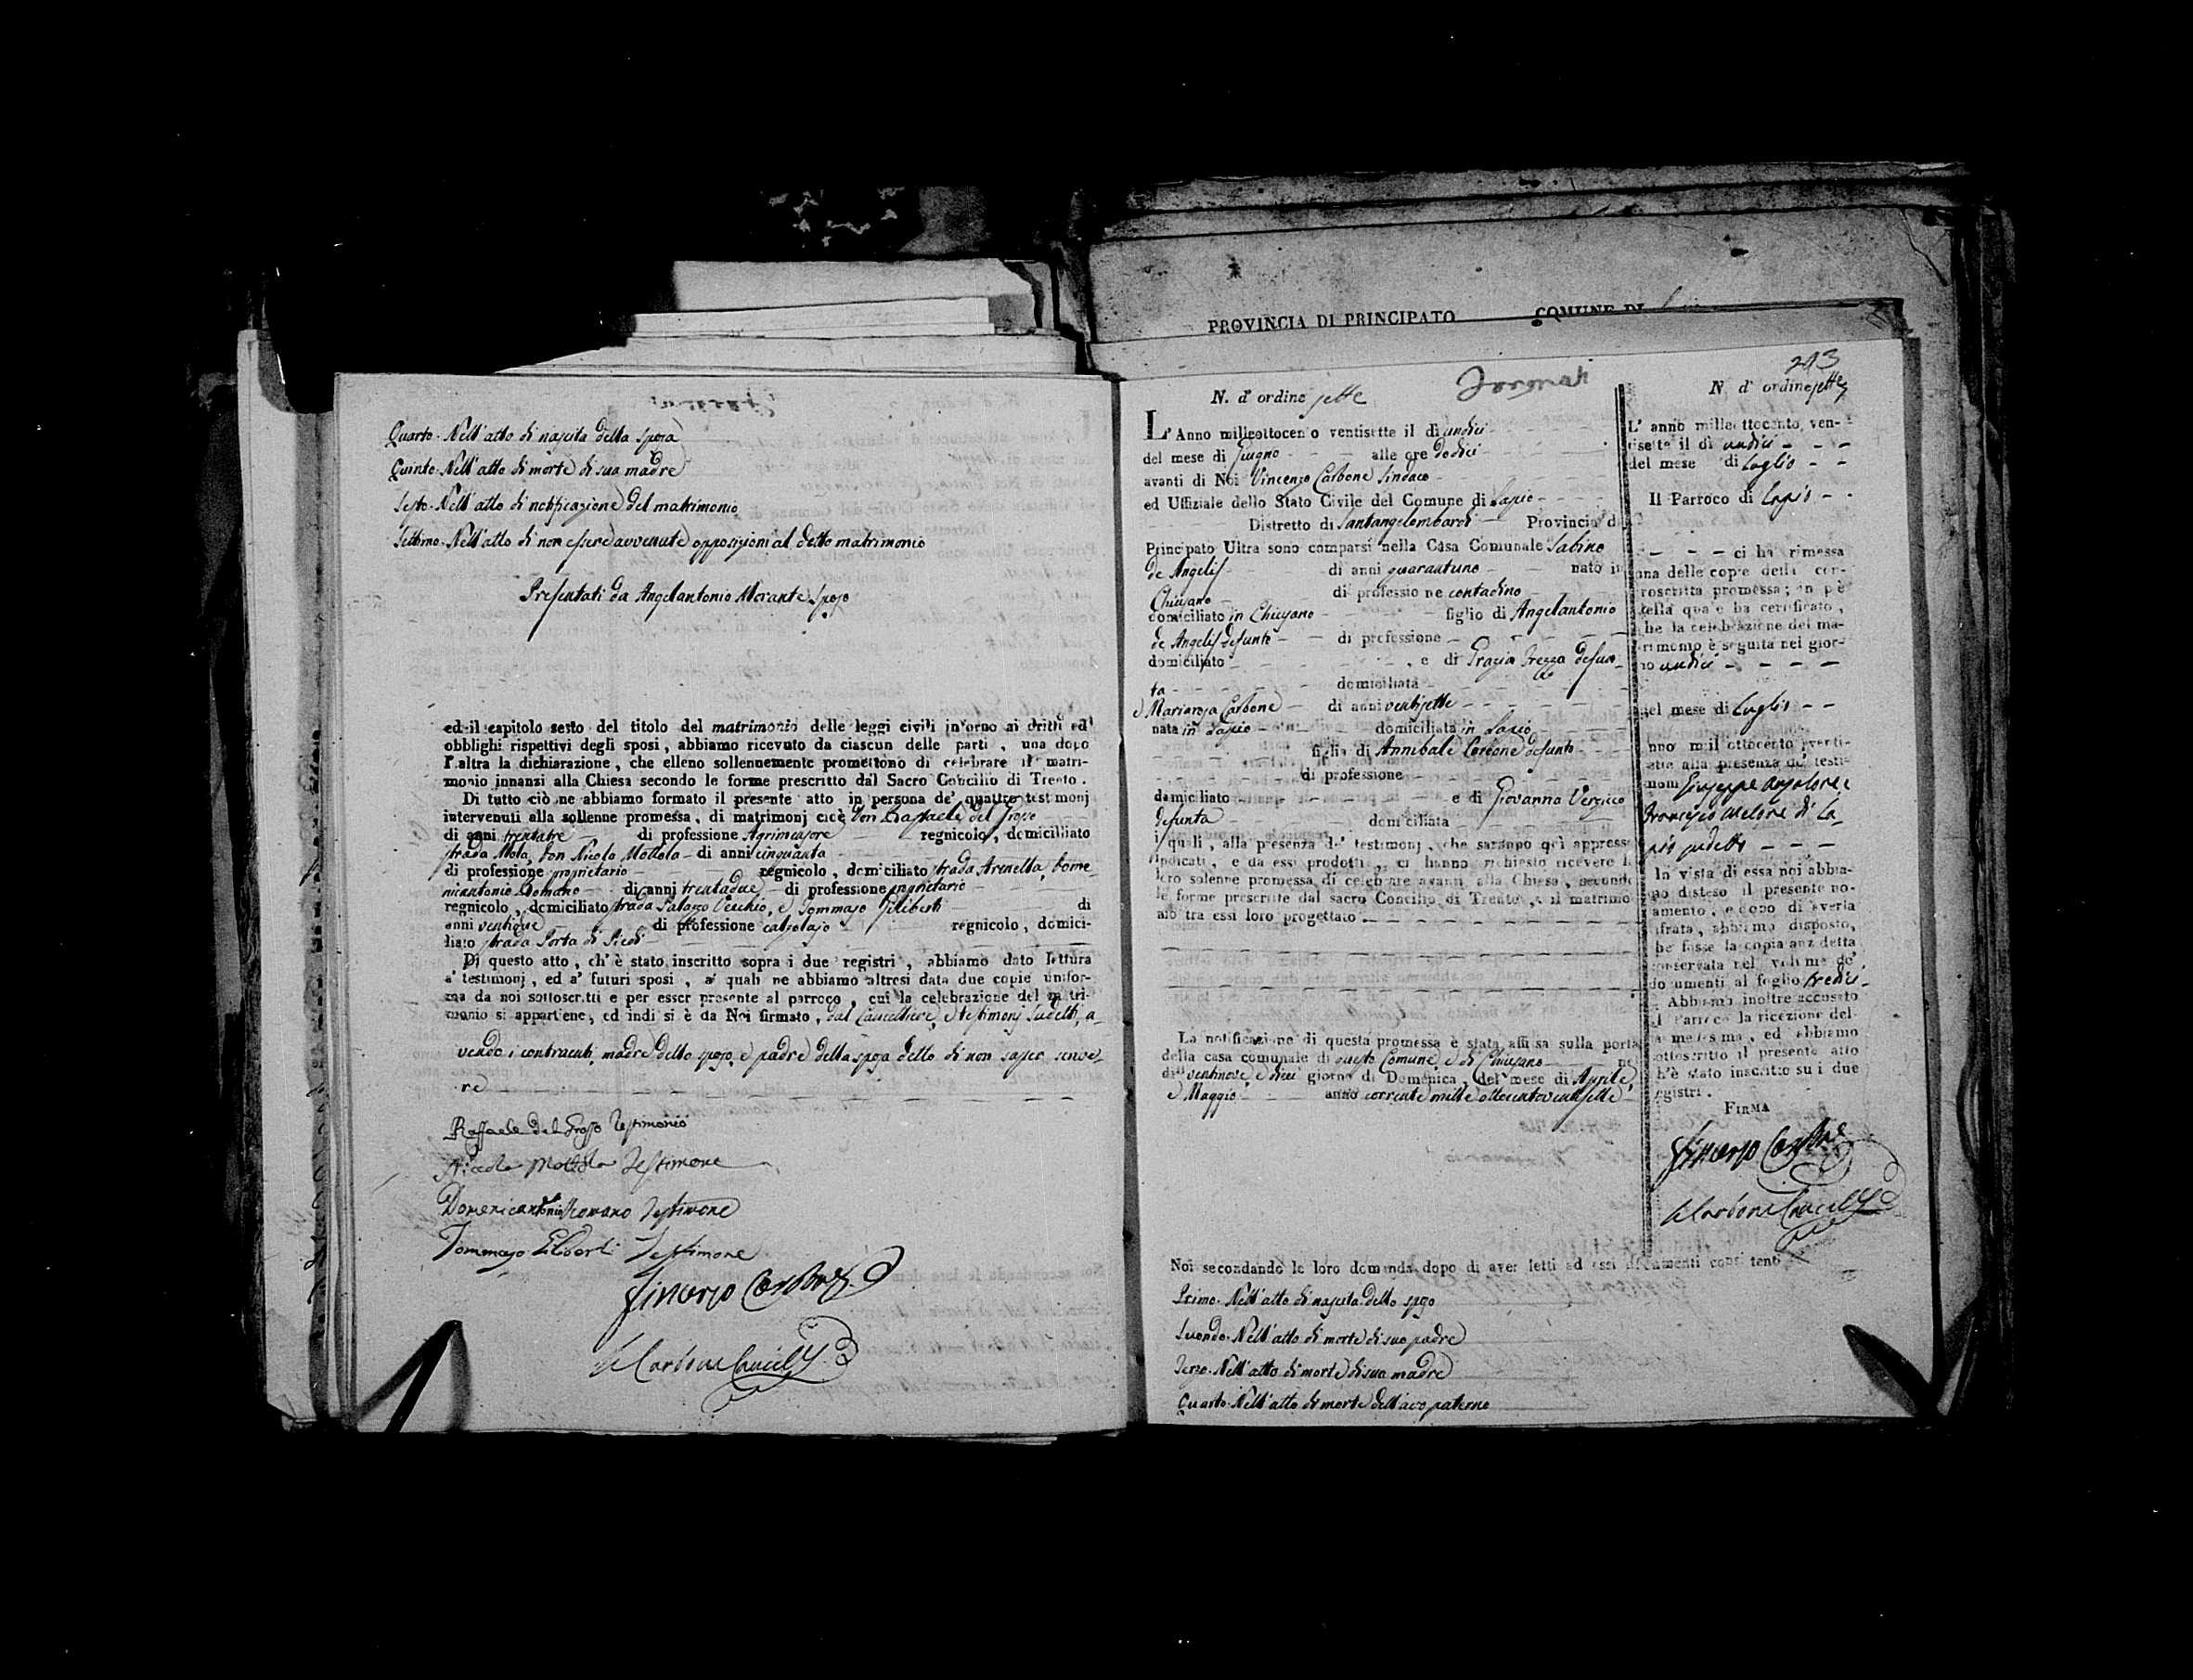 Quarto. Nell'atto di nascita della sposa
Quinto. Nell'atto di morte di sua madre
Sesto. Nell'atto di notificazione del matrimonio
Settimo. Nell'atto di non essere avvenute opposizioni al detto matrimonio
Presentati da Angelantonio Morante sposo
ed il capitolo sesto del titolo del matrimonio delle leggi civili intorno ai dritti ed
obblighi rispettivi degli sposi, abbiamo ricevuto da ciascun delle parti, una dopo
l'altra la dichiarazione, che elleno sollennemente promettono di celebrare il matri-
monio innanzi alla Chiesa secondo le forme prescritto dal Sacro Concilio di Trento.
Di tutto ciò ne abbiamo formato il presente atto in persona de' quattro testimonj
intervenuti alla sollenne promessa, di matrimonj cioè Don Raffaele del Grosso
di anni trentatre di professione Agrimensore regnicolo, domicilliato
strada Mola, Don Nicola Mottola di anni cinquanta
di professione proprietario regnicolo, domiciliato strada Arenella, Dome-
nicantonio Romano di anni trentadue di professione proprietario
regnicolo, domiciliato strada Palazzo Vecchio, e Tommaso Filiberti di
anni ventidue di professione calzolajo regnicolo, domici-
liato strada Porta di
Di questo atto, ch'è stato inscritto sopra i due registri, abbiamo dato lettura
a' testimonj, ed a' futuri sposi, a' quali ne abbiamo altresì data due copie unifor-
ma da noi sottoscritti e per esser presente al parroco, cui la celebrazione del matri-
monio si appartiene, ed indi si è da Noi firmato, dal Cancelliere, e testimonj sudetti, a-
vendo i contraenti, madre dello sposo, e padre della sposa detto di non saper scrive-
re
Raffaele del Grosso Testimonio
Nicola Mottola Testimone
Domenicantonio Romano Testimone
Tommaso Filiberti Testimone
Vincenzo Carbone
Carbone Cancell.
PROVINCIA DI PRINCIPATO COMUNE DI
243
N. d'ordine sette
L'Anno milleottocento ventisette il dì undici
del mese di Giugno alle ore dodici
avanti di Noi Vincenzo Carbone Sindaco
ed Uffiziale dello Stato Civile del Comune di Lapio
Distretto di Santangelombardi Provincia di
Principato Ultra sono comparsi nella Casa Comunale Sabino
de Angelis di anni quarantuno nato in
Chiusano di professione contadino
domiciliato in Chiusano figlio di Angelantonio
de Angelis defunto di professione
domiciliato, e di Grazia Trezza defun-
ta domiciliata
e Mariarosa Carbone di anni ventisette
nata in Lapio domiciliata in Lapio
figlia di Annibale Carbone defunto
di professione
domiciliato e di Giovanna
defunta domiciliata
i quali, alla presenza de' testimonj, che saranno quì appresso
indicati, e da essi prodotti, ci hanno richiesto ricevere la
loro solenne promessa di celebrare avanti alla Chiesa, secondo
le forme prescritte dal sacro Concilio di Trento, il matrimo
nio tra essi loro progettato.
La notificazione di questa promessa è stata affissa sulla porta
della casa comunale di questo Comune, e di Chiusano ne
dì ventinove, e dieci giorno di Domenica, del mese di Aprile,
e Maggio anno corrente mille ottocentoventisette
Noi secondando le loro domanda dopo di aver letti ad essi documenti consistenti
Primo. Nell'atto di nascita dello sposo
Secondo. Nell'atto di morte di suo padre
Terzo. Nell'atto di morte di sua madre
Quarto. Nell'atto di morte dell'avo paterno
N. d'ordine sette
L'anno milleottocento, ven-
tisette il dì undici
del mese di Luglio
Il Parroco di Lapio
ci ha rimessa
una delle copie della con-
troscritta promessa; in piè
della quale ha certificato,
che la celebrazione del ma-
trimonio è seguita nel gior-
no undici
del mese di Luglio
anno mill'ottocento venti-
sette alla presenza de' testi-
monj Giuseppe e
Francesco Melone di La-
pio sudetto
In vista di essa noi abbia-
mo disteso il presente no-
tamento, e dopo di averla
cifrata, abbiamo disposto,
che fosse la copia anzidetta
conservata nel volume de'
documenti al foglio tredici.
Abbiamo inoltre accusato
al Parroco la ricezione del-
la medesima, ed abbiamo
sottoscritto il presente atto
ch'è stato inscritto su i due
registri.
FIRMA
Vincenzo Carbone
Carbone Cancell.